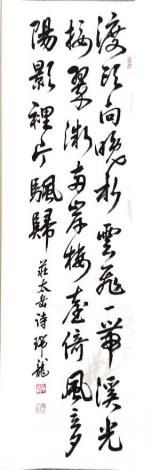 渡頭向晚彩雲飛一帶溪光
接翠微兩岸樓臺倚風
陽影裡片颿歸
莊太岳詩 瑞龍